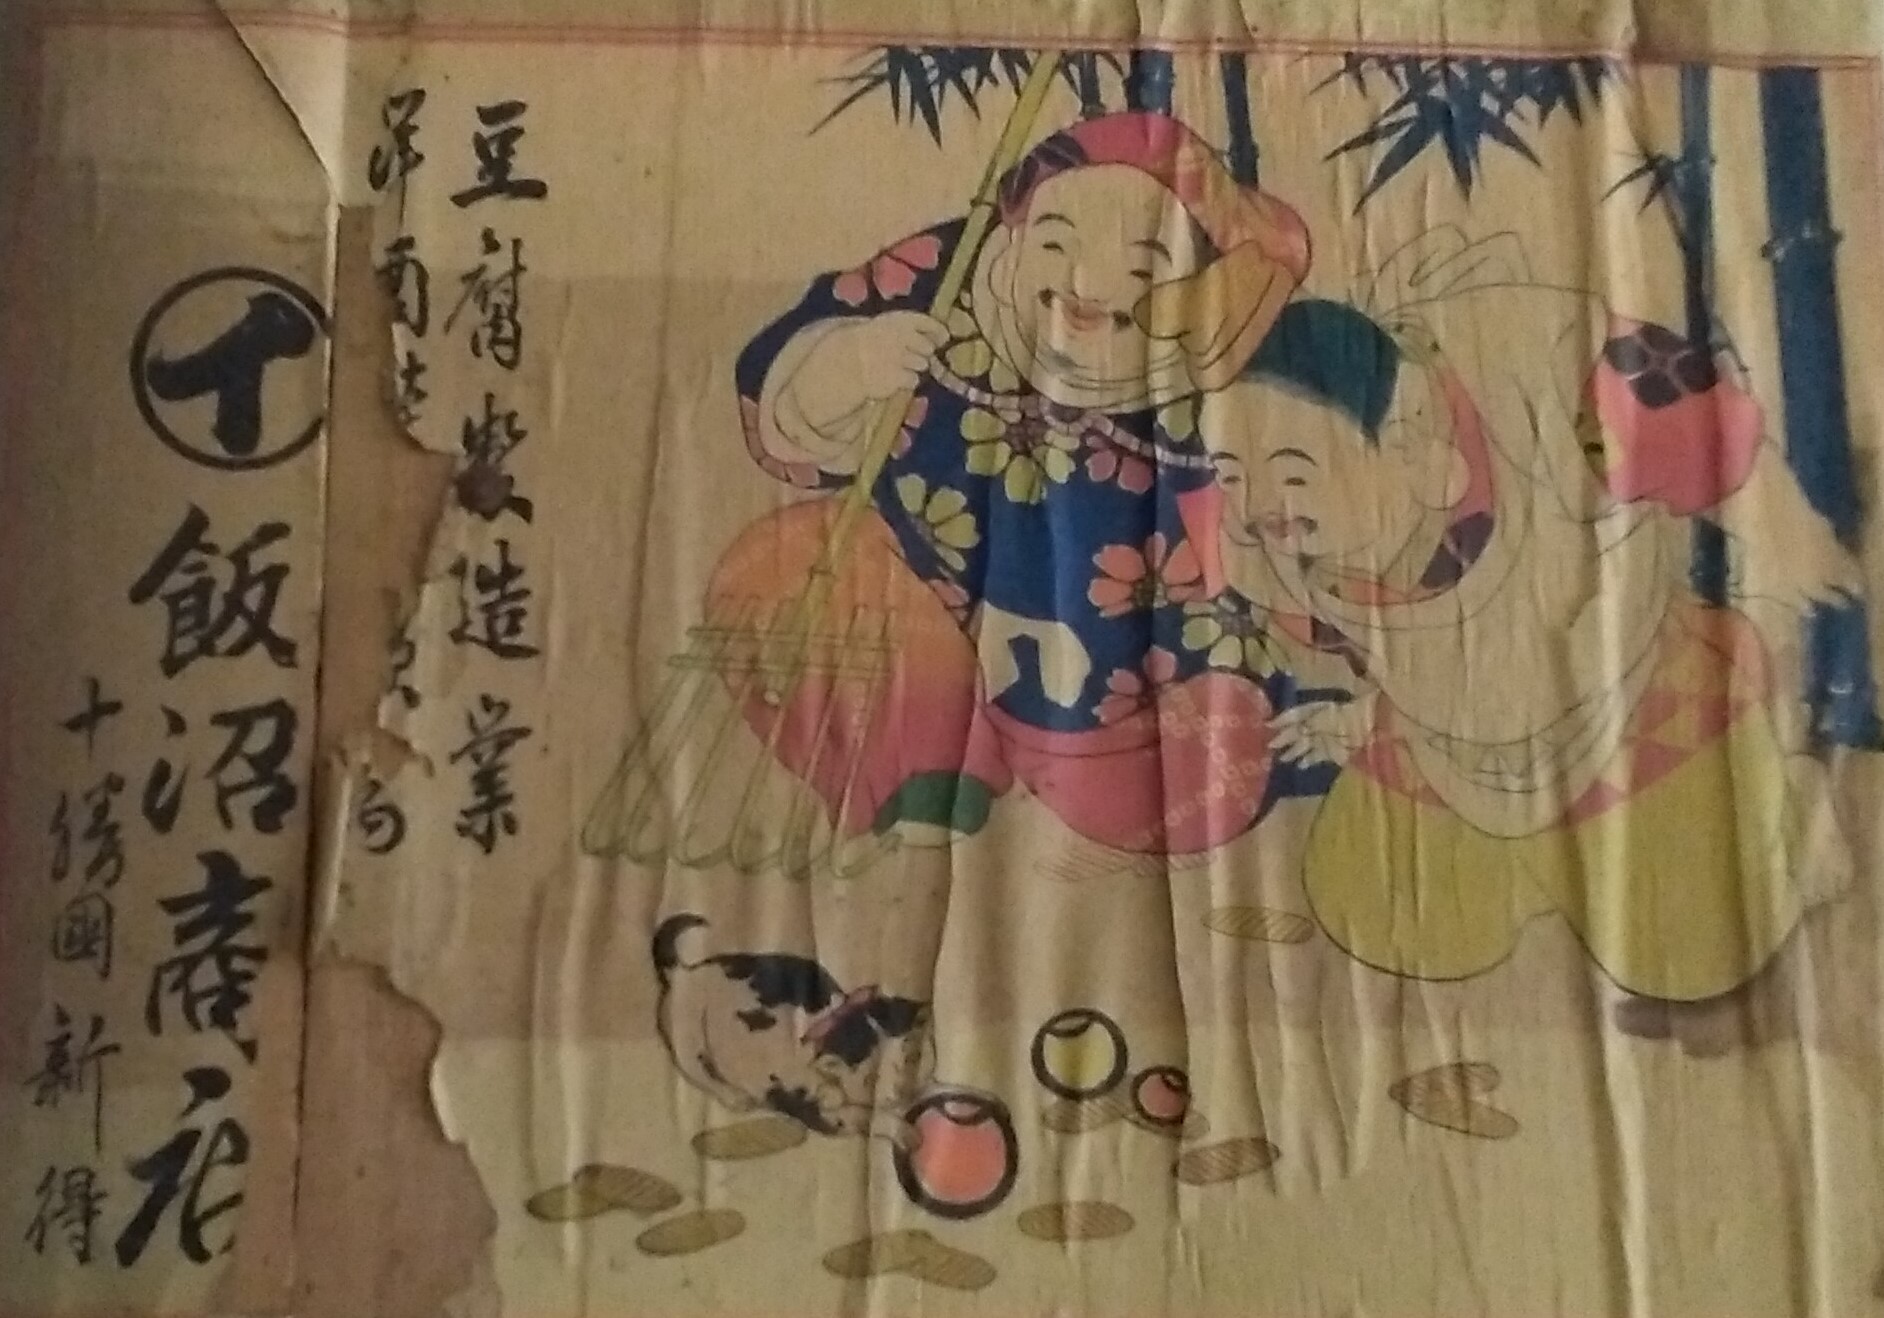 豆腐製造業
洋酒
イ 飯沼商店
十勝國新得